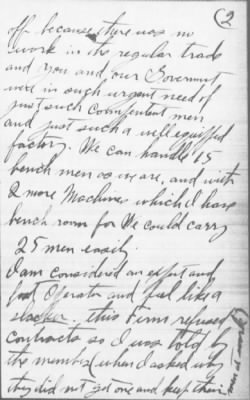 (2
off because there was no
work in the regular trade
and you and our Goverment
were in such urgent need of
just such competent men
and just such a well equipped
factory. We can handle 15
bench men as we are, and with
2 more Machines which I have
bench room for We could carry
25 men easily.
I am considered an expert and
fast Operator and feel like a
slacker. this Firm refused
contracts so I was told by
the member (when I asked why
they did not get one and keep their
men